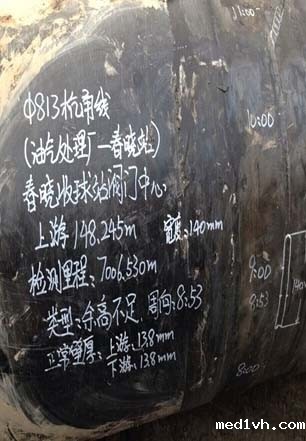 11:00
Φ813杭甬线
10:00
(油气处理厂—春晓站)
春晓收球站阀门中心:
上游148.245m 宽度:140mm
检测里程:7006.530m
9:00
类型:余高不足 周向:8:53
8:53
正常壁厚:上游:13.8mm
下游:13.8mm
8:00
med1vh.com